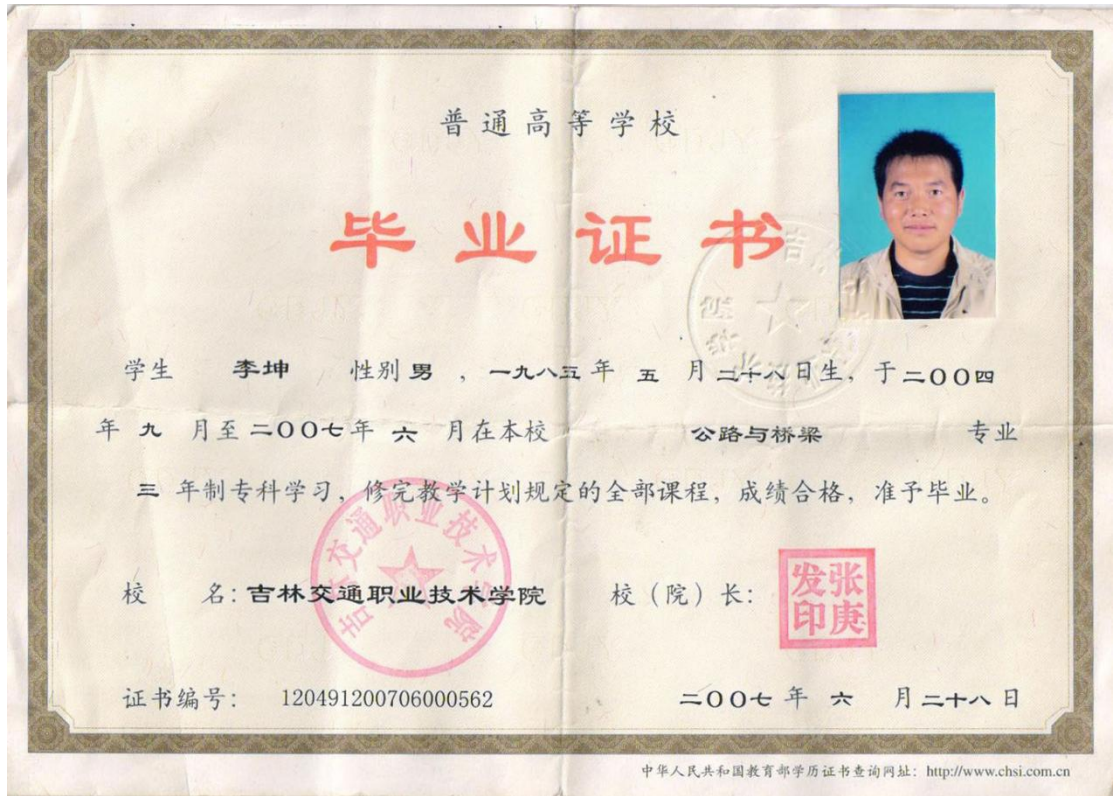 普通高等学校
毕业证书
学生 李坤 性别 男 ，一九八五年 五 月二十八日生，于二〇〇四
年 九 月至二〇〇七年 六 月在本校 公路与桥梁 专业
三 年制专科学习，修完教学计划规定的全部课程，成绩合格，准予毕业。
吉林交通职业技术学院
校 名：吉林交通职业技术学院 校（院）长：
张庚
发印
证书编号： 120491200706000562 二〇〇七年 六 月二十八日
中华人民共和国教育部学历证书查询网址：http://www.chsi.com.cn